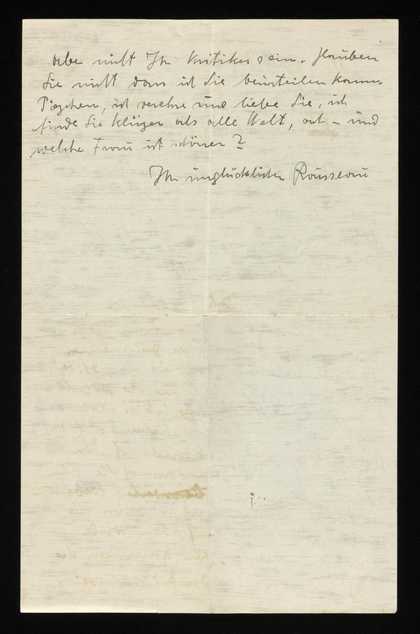 aber nicht Ihr Kritiker sein. Glauben
Sie nicht dass ich Sie beurteilen kann
ich verehre und liebe Sie, ich
finde Sie klüger als alle Welt, ach – und
welche Frau ist schöner?
Ihr unglücklicher Rousseau